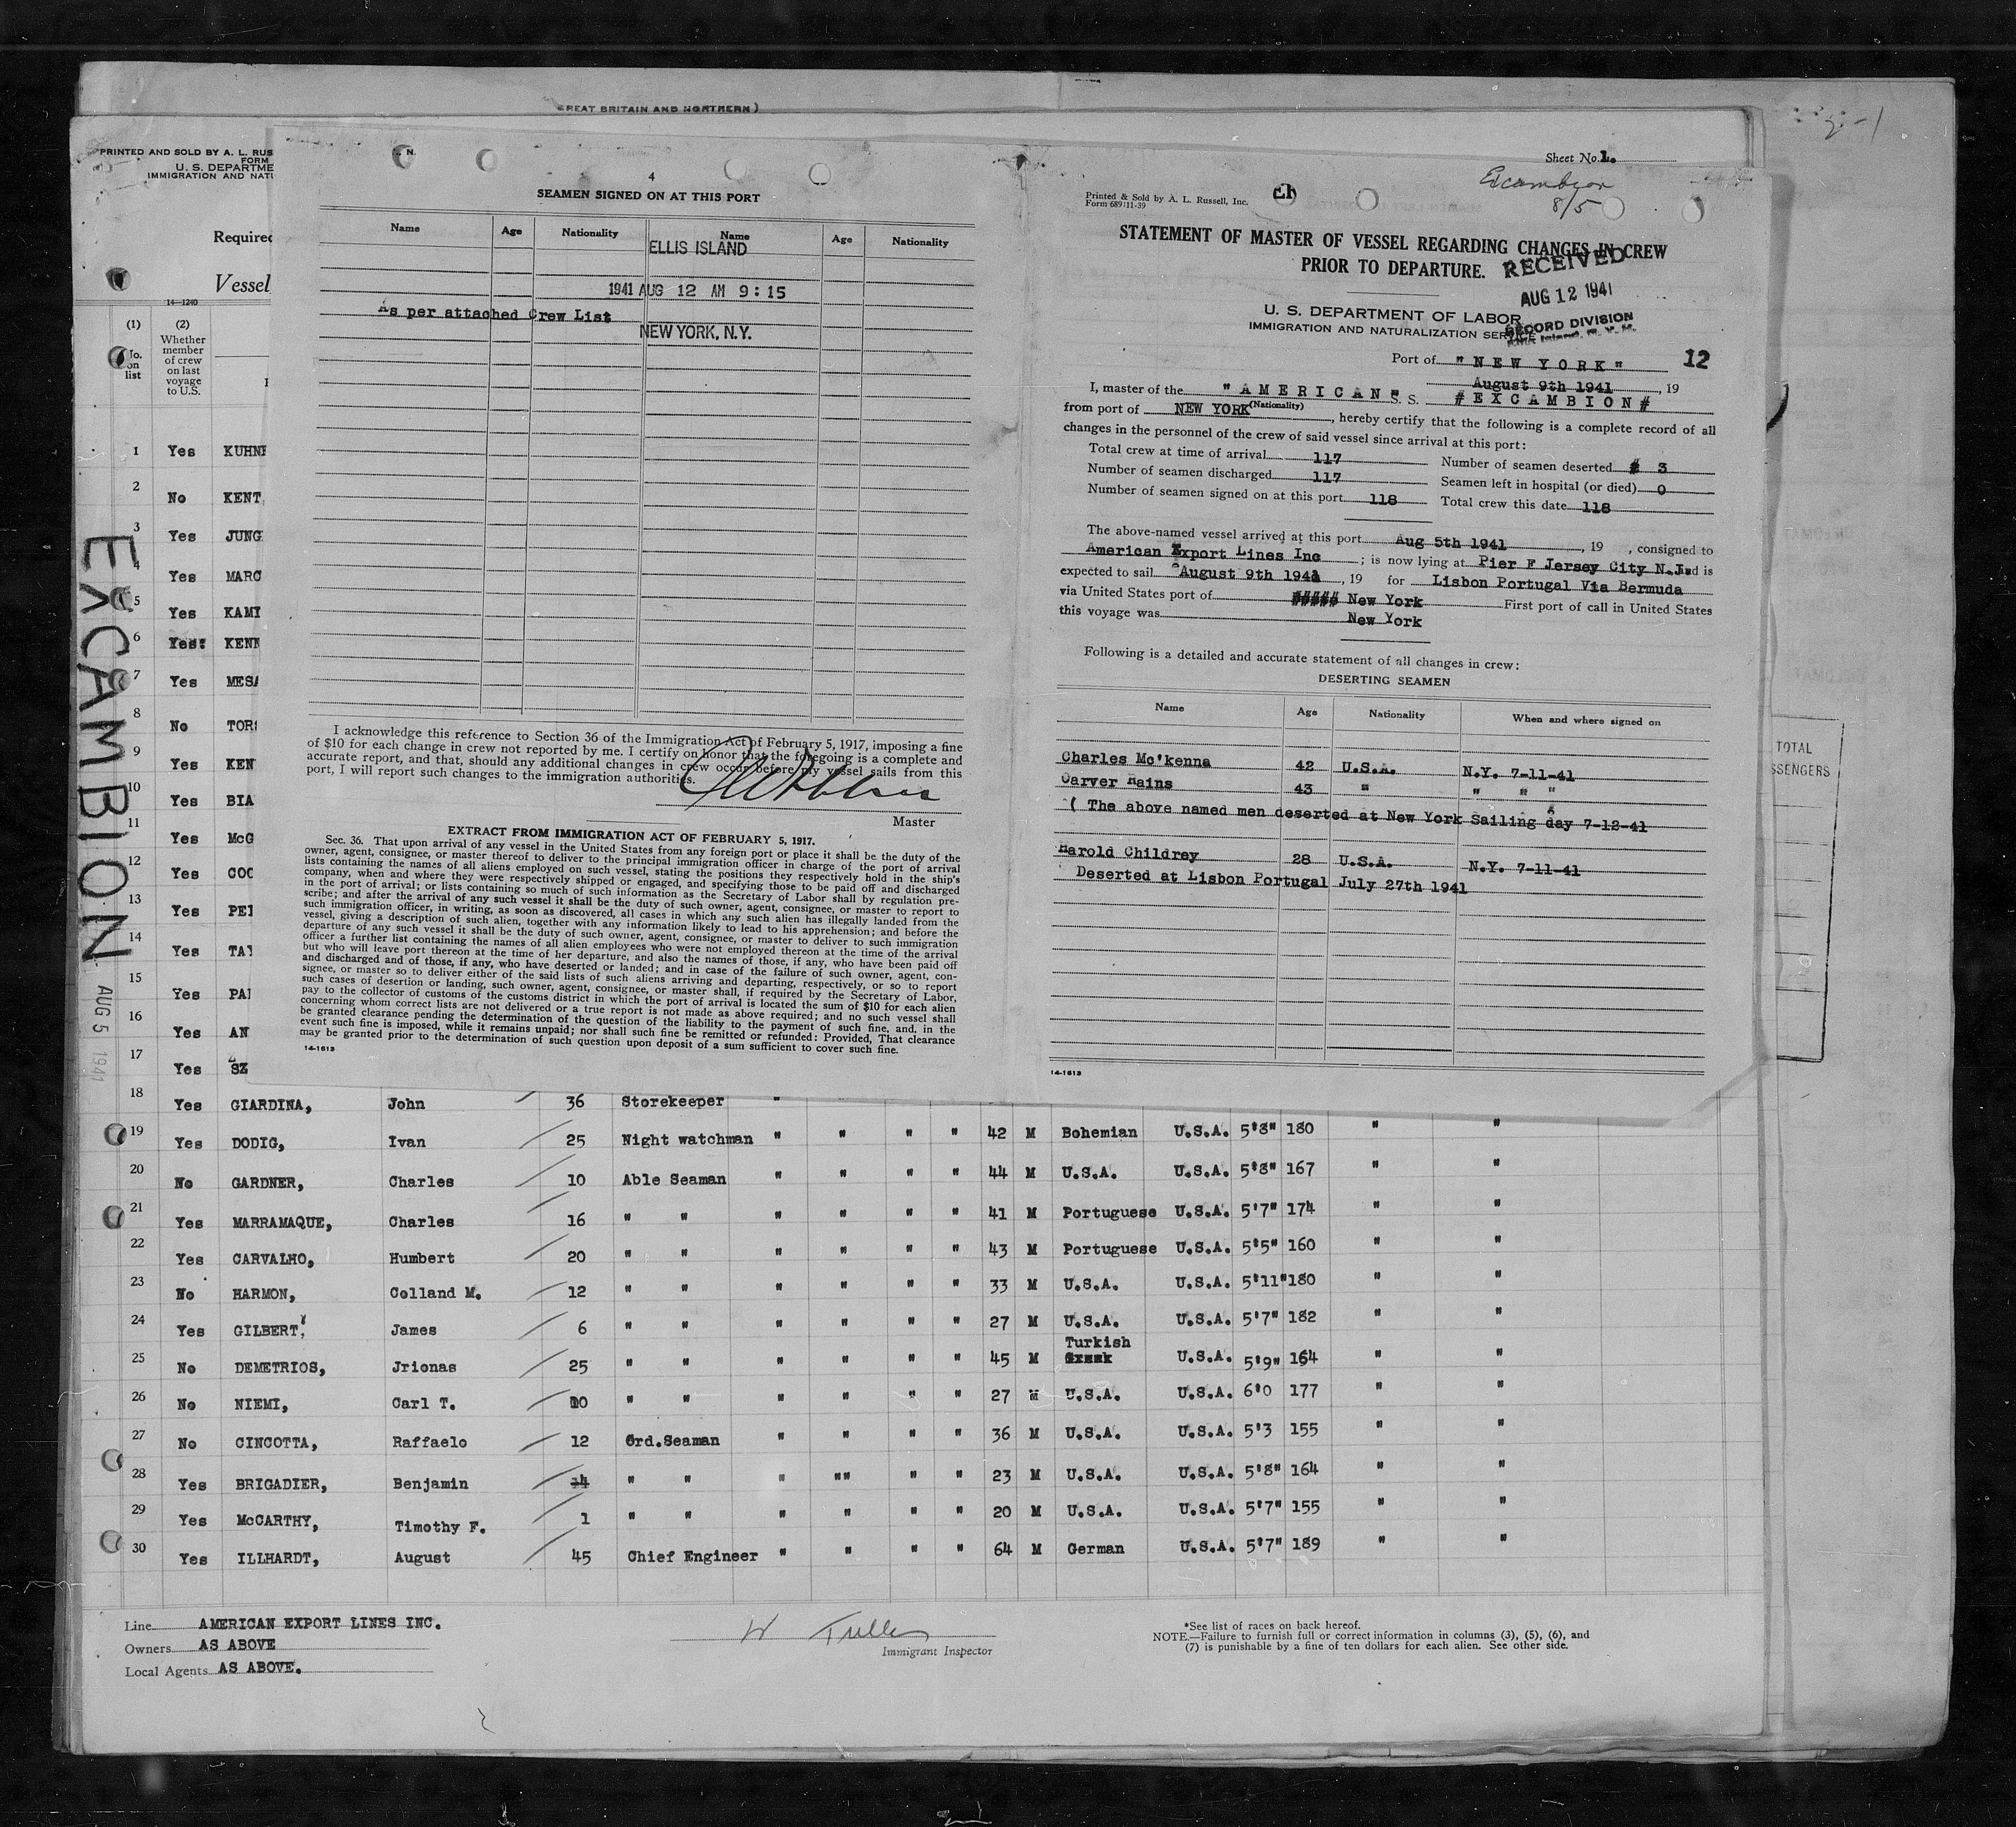 GREAT BRITAIN AND NORTHERN)
PRINTED AND SOLD BY A. L. RUS
FORM
U. S. DEPARTME
IMMIGRATION AND NATU
Required
Vessel
14—1240
(1) (2)
No. on list
Whether member of crew on last voyage to U.S.
Sheet No. 1.
EXCAMBION
AUG 5 1941
1 Yes KUHN
2 No KENT
3 Yes JUNG
4 Yes MARC
5 Yes KAMI
6 Yes: KENN
7 Yes MESA
8 No TORS
9 Yes KEN
10 Yes BIA
11 Yes McG
12 Yes COC
13 Yes PEI
14 Yes TAY
15 Yes PAI
16 Yes AN
17 Yes SZ
4
SEAMEN SIGNED ON AT THIS PORT
Name Age Nationality Name Age Nationality
ELLIS ISLAND
1941 AUG 12 AM 9:15
As per attached Crew List
NEW YORK, N.Y.
I acknowledge this reference to Section 36 of the Immigration Act of February 5, 1917, imposing a fine
of $10 for each change in crew not reported by me. I certify on honor that the foregoing is a complete and
accurate report, and that, should any additional changes in crew occur before my vessel sails from this
port, I will report such changes to the immigration authorities.
Master
EXTRACT FROM IMMIGRATION ACT OF FEBRUARY 5, 1917.
Sec. 36. That upon arrival of any vessel in the United States from any foreign port or place it shall be the duty of the
owner, agent, consignee, or master thereof to deliver to the principal immigration officer in charge of the port of arrival
lists containing the names of all aliens employed on such vessel, stating the positions they respectively hold in the ship's
company, when and where they were respectively shipped or engaged, and specifying those to be paid off and discharged
in the port of arrival; or lists containing so much of such information as the Secretary of Labor shall by regulation pre-
scribe; and after the arrival of any such vessel it shall be the duty of such owner, agent, consignee, or master to report to
such immigration officer, in writing, as soon as discovered, all cases in which any such alien has illegally landed from the
vessel, giving a description of such alien, together with any information likely to lead to his apprehension; and before the
departure of any such vessel it shall be the duty of such owner, agent, consignee, or master to deliver to such immigration
officer a further list containing the names of all alien employees who were not employed thereon at the time of the arrival
but who will leave port thereon at the time of her departure, and also the names of those, if any, who have been paid off
and discharged and of those, if any, who have deserted or landed; and in case of the failure of such owner, agent, con-
signee, or master so to deliver either of the said lists of such aliens arriving and departing, respectively, or so to report
such cases of desertion or landing, such owner, agent, consignee, or master shall, if required by the Secretary of Labor,
pay to the collector of customs of the customs district in which the port of arrival is located the sum of $10 for each alien
concerning whom correct lists are not delivered or a true report is not made as above required; and no such vessel shall
be granted clearance pending the determination of the question of the liability to the payment of such fine, and, in the
event such fine is imposed, while it remains unpaid; nor shall such fine be remitted or refunded: Provided, That clearance
may be granted prior to the determination of such question upon deposit of a sum sufficient to cover such fine.
14-1613
Printed & Sold by A. L. Russell, Inc.
Form 689:11-39
Excambion
8/5
STATEMENT OF MASTER OF VESSEL REGARDING CHANGES IN CREW
PRIOR TO DEPARTURE.
RECEIVED
AUG 12 1941
RECORD DIVISION
U. S. DEPARTMENT OF LABOR
IMMIGRATION AND NATURALIZATION SERVICE
Port of "NEW YORK" 12
August 9th 1941, 19
I, master of the "AMERICAN" S. S. #EXCAMBION#
(Nationality)
from port of NEW YORK, hereby certify that the following is a complete record of all
changes in the personnel of the crew of said vessel since arrival at this port:
Total crew at time of arrival 117 Number of seamen deserted # 3
Number of seamen discharged 117 Seamen left in hospital (or died) 0
Number of seamen signed on at this port 118 Total crew this date 118
The above-named vessel arrived at this port Aug 5th 1941, 19 , consigned to
American Export Lines Inc ; is now lying at Pier F Jersey City N.J. and is
expected to sail August 9th 1941, 19 for Lisbon Portugal Via Bermuda
via United States port of ##### New York First port of call in United States
this voyage was New York
Following is a detailed and accurate statement of all changes in crew:
DESERTING SEAMEN
Name Age Nationality When and where signed on
Charles Mc'kenna 42 U.S.A. N.Y. 7-11-41
Carver Rains 43 " " " "
( The above named men deserted at New York Sailing day 7-12-41
Harold Childrey 28 U.S.A. N.Y. 7-11-41
Deserted at Lisbon Portugal July 27th 1941
14-1613
TOTAL
SSENGERS
18 Yes GIARDINA, John 36 Storekeeper "
19 Yes DODIG, Ivan 25 Night watchman " " " " 42 M Bohemian U.S.A. 5'8" 180 " "
20 No GARDNER, Charles 10 Able Seaman " " " " 44 M U.S.A. U.S.A. 5'8" 167 " "
21 Yes MARRAMAQUE, Charles 16 " " " " " " 41 M Portuguese U.S.A. 5'7" 174 " "
22 Yes CARVALHO, Humbert 20 " " " " " " 43 M Portuguese U.S.A. 5'5" 160 " "
23 No HARMON, Colland M. 12 " " " " " " 33 M U.S.A. U.S.A. 5'11" 180 " "
24 Yes GILBERT, James 6 " " " " " " 27 M U.S.A. U.S.A. 5'7" 182 " "
25 No DEMETRIOS, Jrionas 25 " " " " " " 45 M Turkish Greek U.S.A. 5'9" 164 " "
26 No NIEMI, Carl T. 10 " " " " " " 27 M U.S.A. U.S.A. 6'0 177 " "
27 No CINCOTTA, Raffaelo 12 Ord.Seaman " " " " 36 M U.S.A. U.S.A. 5'3 155 " "
28 Yes BRIGADIER, Benjamin 14 " " " "" " " 23 M U.S.A. U.S.A. 5'8" 164 " "
29 Yes McCARTHY, Timothy F. 1 " " " " " " 20 M U.S.A. U.S.A. 5'7" 155 " "
30 Yes ILLHARDT, August 45 Chief Engineer " " " " 64 M German U.S.A. 5'7" 189 " "
Line AMERICAN EXPORT LINES INC.
Owners AS ABOVE
Local Agents AS ABOVE.
Immigrant Inspector
*See list of races on back hereof.
NOTE.—Failure to furnish full or correct information in columns (3), (5), (6), and
(7) is punishable by a fine of ten dollars for each alien. See other side.